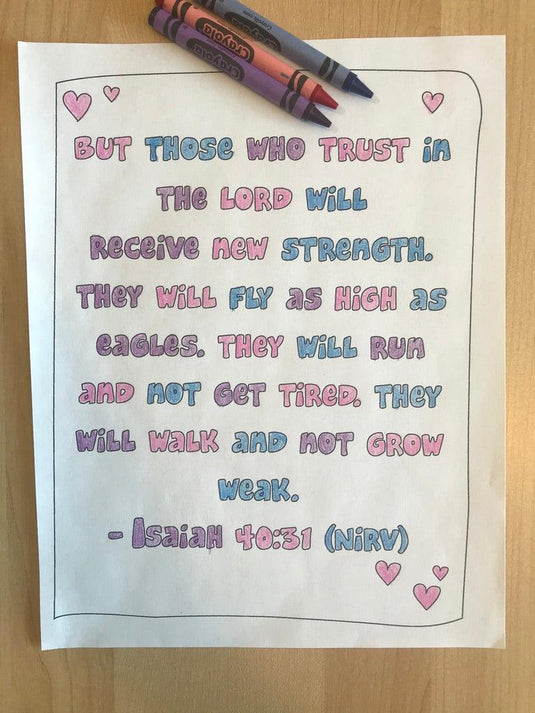 Crayola
Crayola
Crayola
BUT THOSE WHO TRUST in
THE LORD WiLL
RECEiVE NEW STRENGTH.
THEY WiLL FLY AS HiGH AS
EAGLES. THEY WiLL RUN
AND NOT GET TiRED. THEY
WiLL WALK AND NOT GROW
WEAK.
- ISAiAH 40:31 (NiRV)